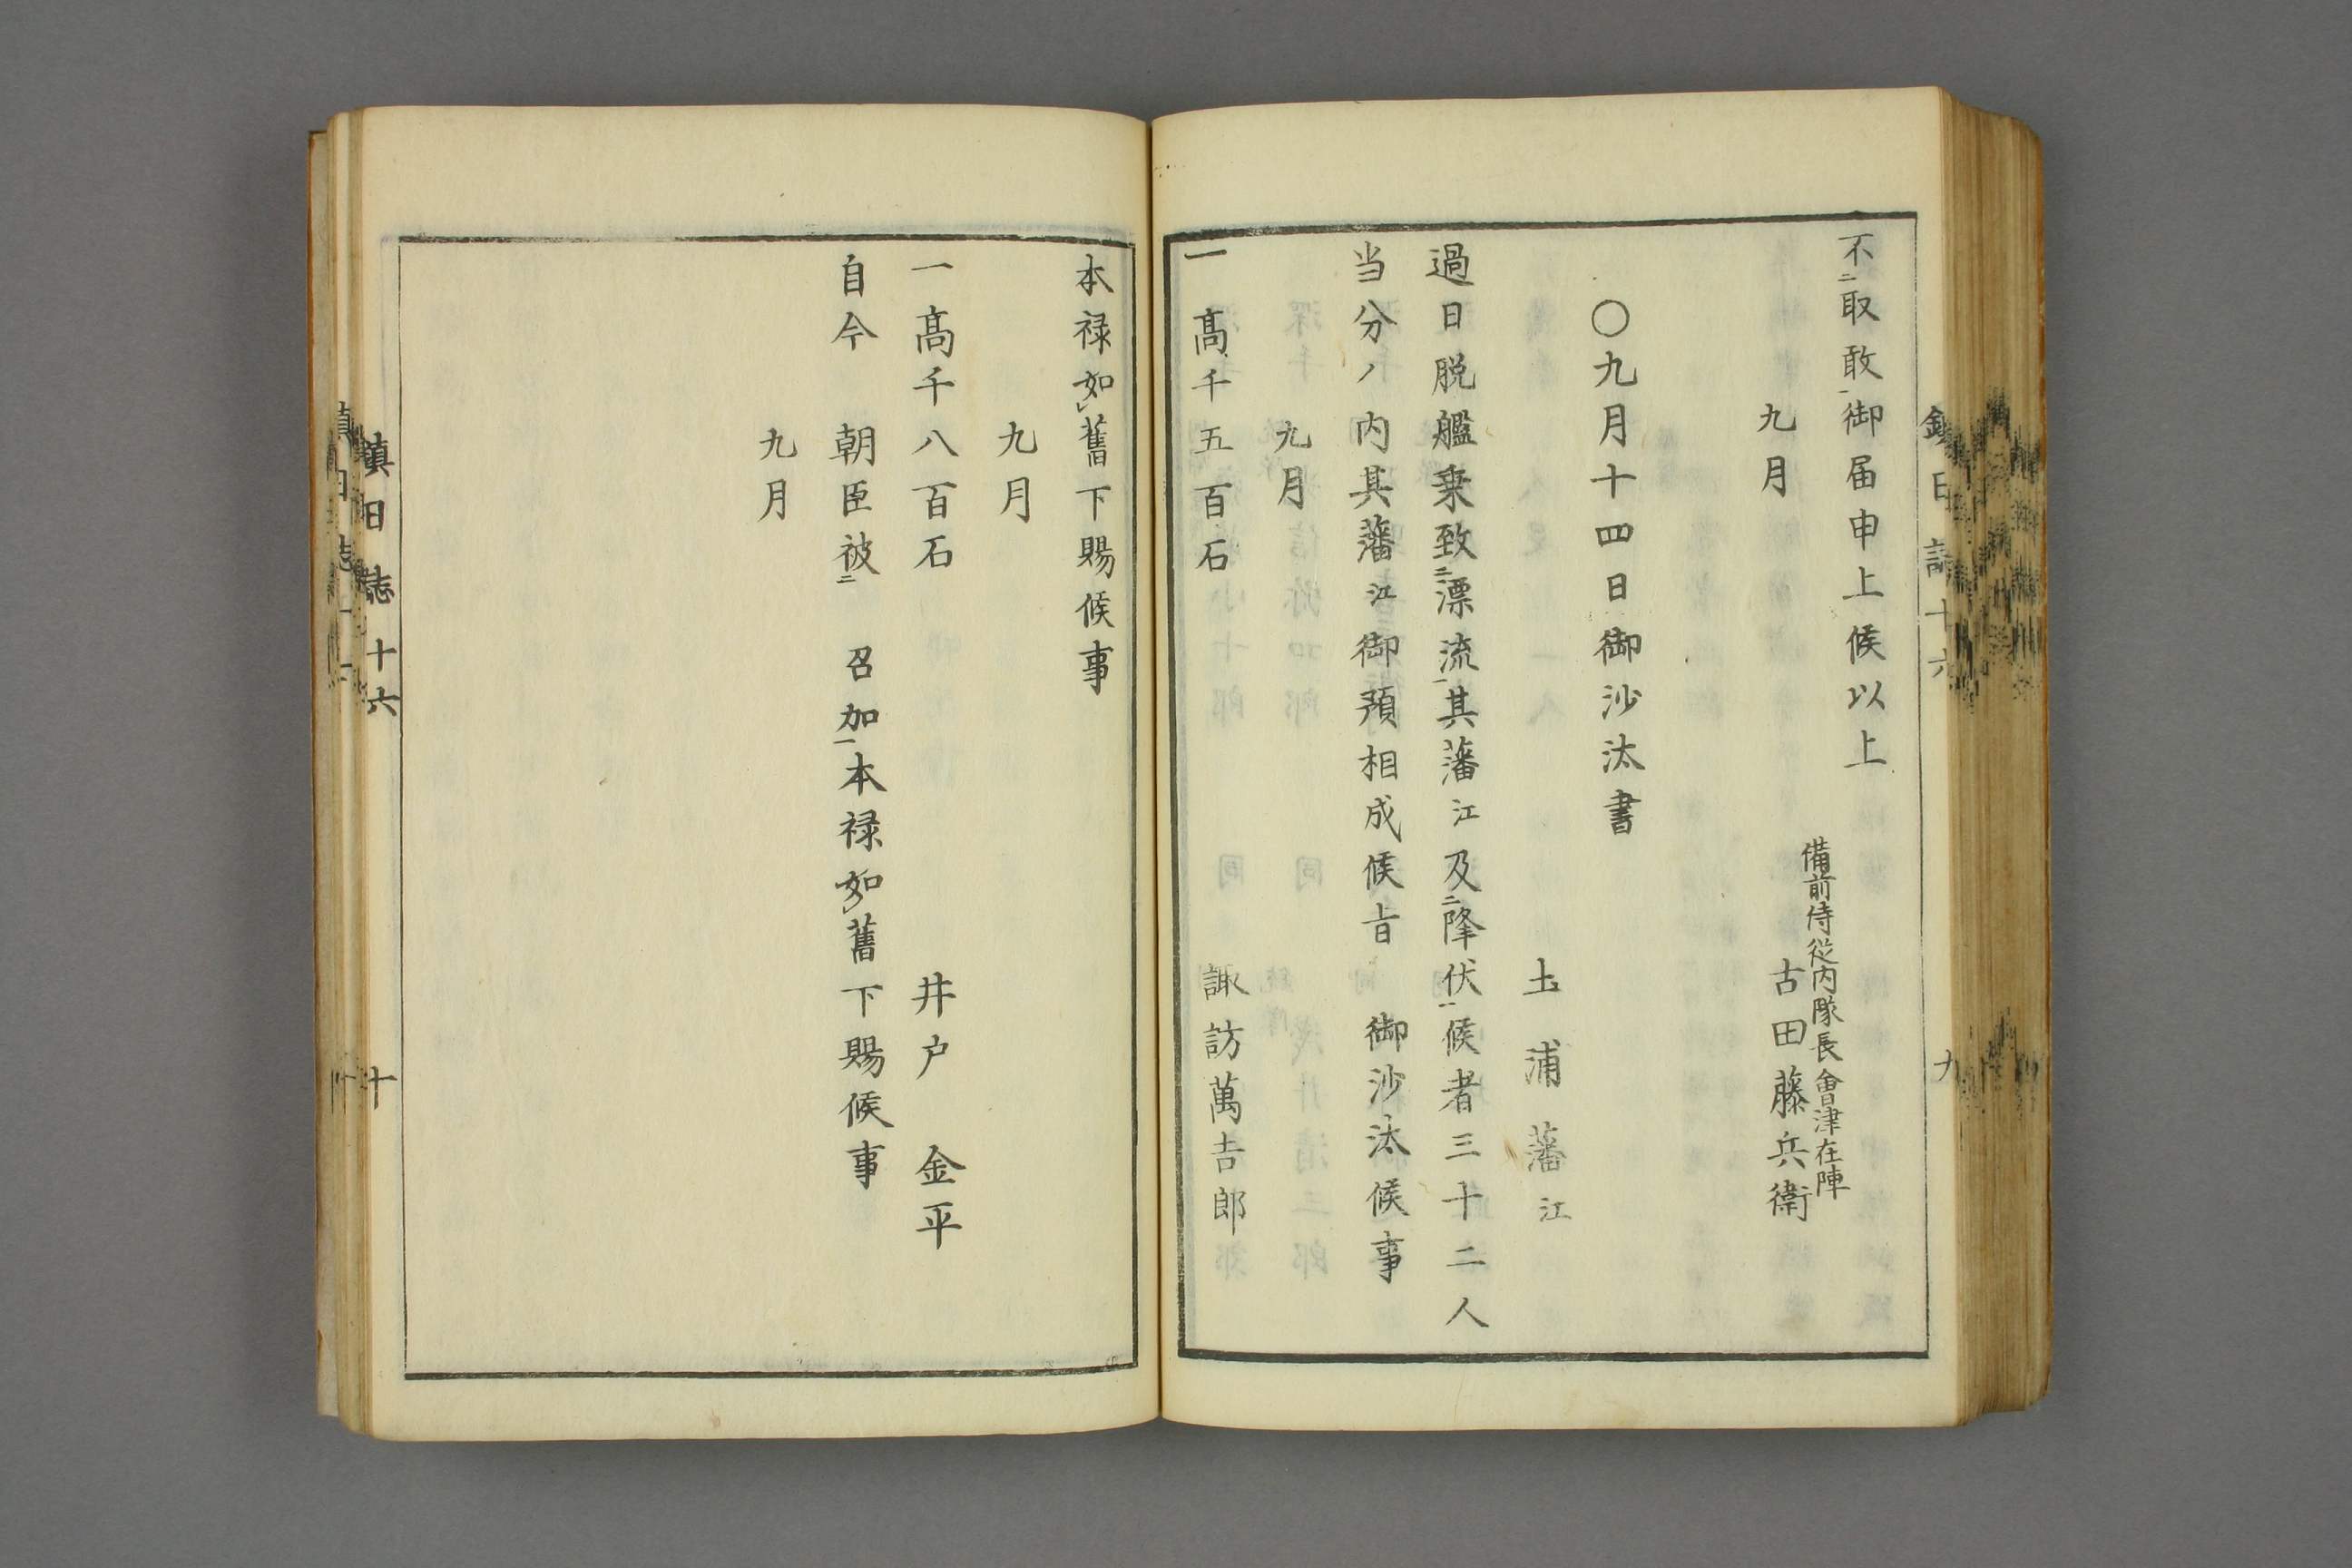 不二取敢一御届申上候以上
備前侍従内隊長會津在陣
九月　古田藤兵衛
〇九月十四日御沙汰書
土浦藩江
過日脱艦乗致二漂流一其藩江及二降伏一候者三十二人
当分ノ内其藩江御預相成候旨　御沙汰候事
九月
一　髙千五百石　諏訪萬吉郎
本禄如レ舊下賜候事
九月
一髙千八百石　井戸　金平
自今　朝臣被二　召加一本禄如レ舊下賜候事
九月
鎮日誌十六　十